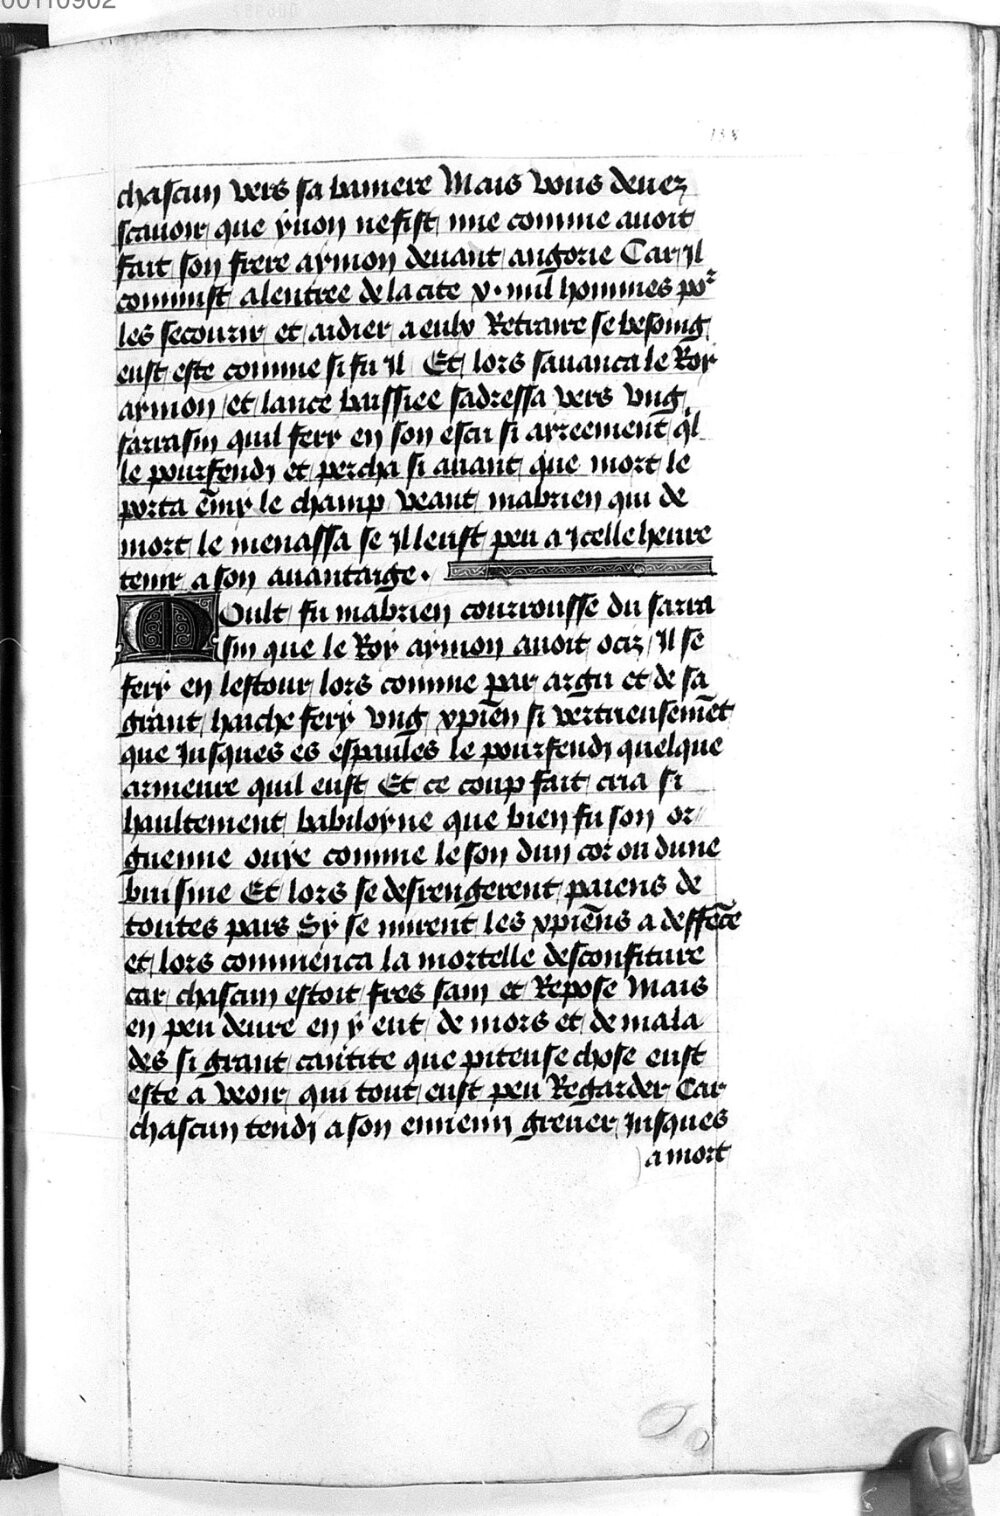 00110902
138
chascun vers sa baniere Mais vous deuez
scauoir que yuon ne fist mie comme auoit
fait son frere aymon deuant angorie Car Il
commist a lentree de la cite x. mil hommes por
les secourir et aidier a eulx Retraire se besoing
eust este comme si fu il Et lors sauanca le Roy
aymon et lance baissiee sadressa vers vng
sarrasin quil fery en son escu si aireement ql
le pourfendj et percha si auant que mort le
porta ēmy le champ veant mabrien qui de
mort le menassa se Il leust peu a Icelle heure
tenir a son auantaige.
Moult fu mabrien courrousse du sarra
sin que le Roy aymon auoit ociz / Il se
fery en lestour lors comme par argu et de sa
grant haiche fery vng xpiēn si vertueusemēt
que Jusques es espaules le pourfendj quelque
armeure quil eust Et ce coup fait cria si
haultement babiloyne que bien fu son or
guenne ouye comme le son dun cor ou dune
buisine Et lors se desrengerent paiens de
toutes pars Sy se mirent les xpiēns a deffēce
et lors commenca la mortelle desconfiture
car chascun estoit fres sain et Repose Mais
en peu deure en y eut de mors et de mala
des si grant cantite que piteuse chose eust
este a veoir qui tout eust peu Regarder Car
chascun tendj a son ennemj greuer Jusques
a mort